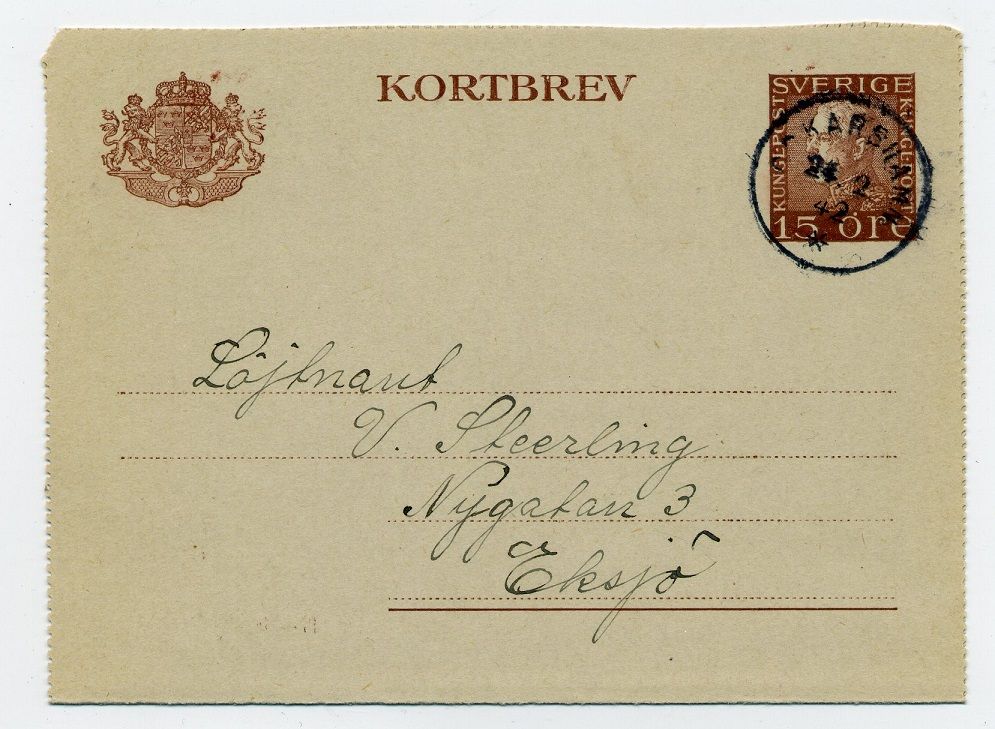 KORTBREV
SVERIGE
KUNGL·POST
KUNGL·POST
15 öre
KARSHAMN
24 2
42
Löjtnant
V. Steerling
Nygatan 3
Eksjö